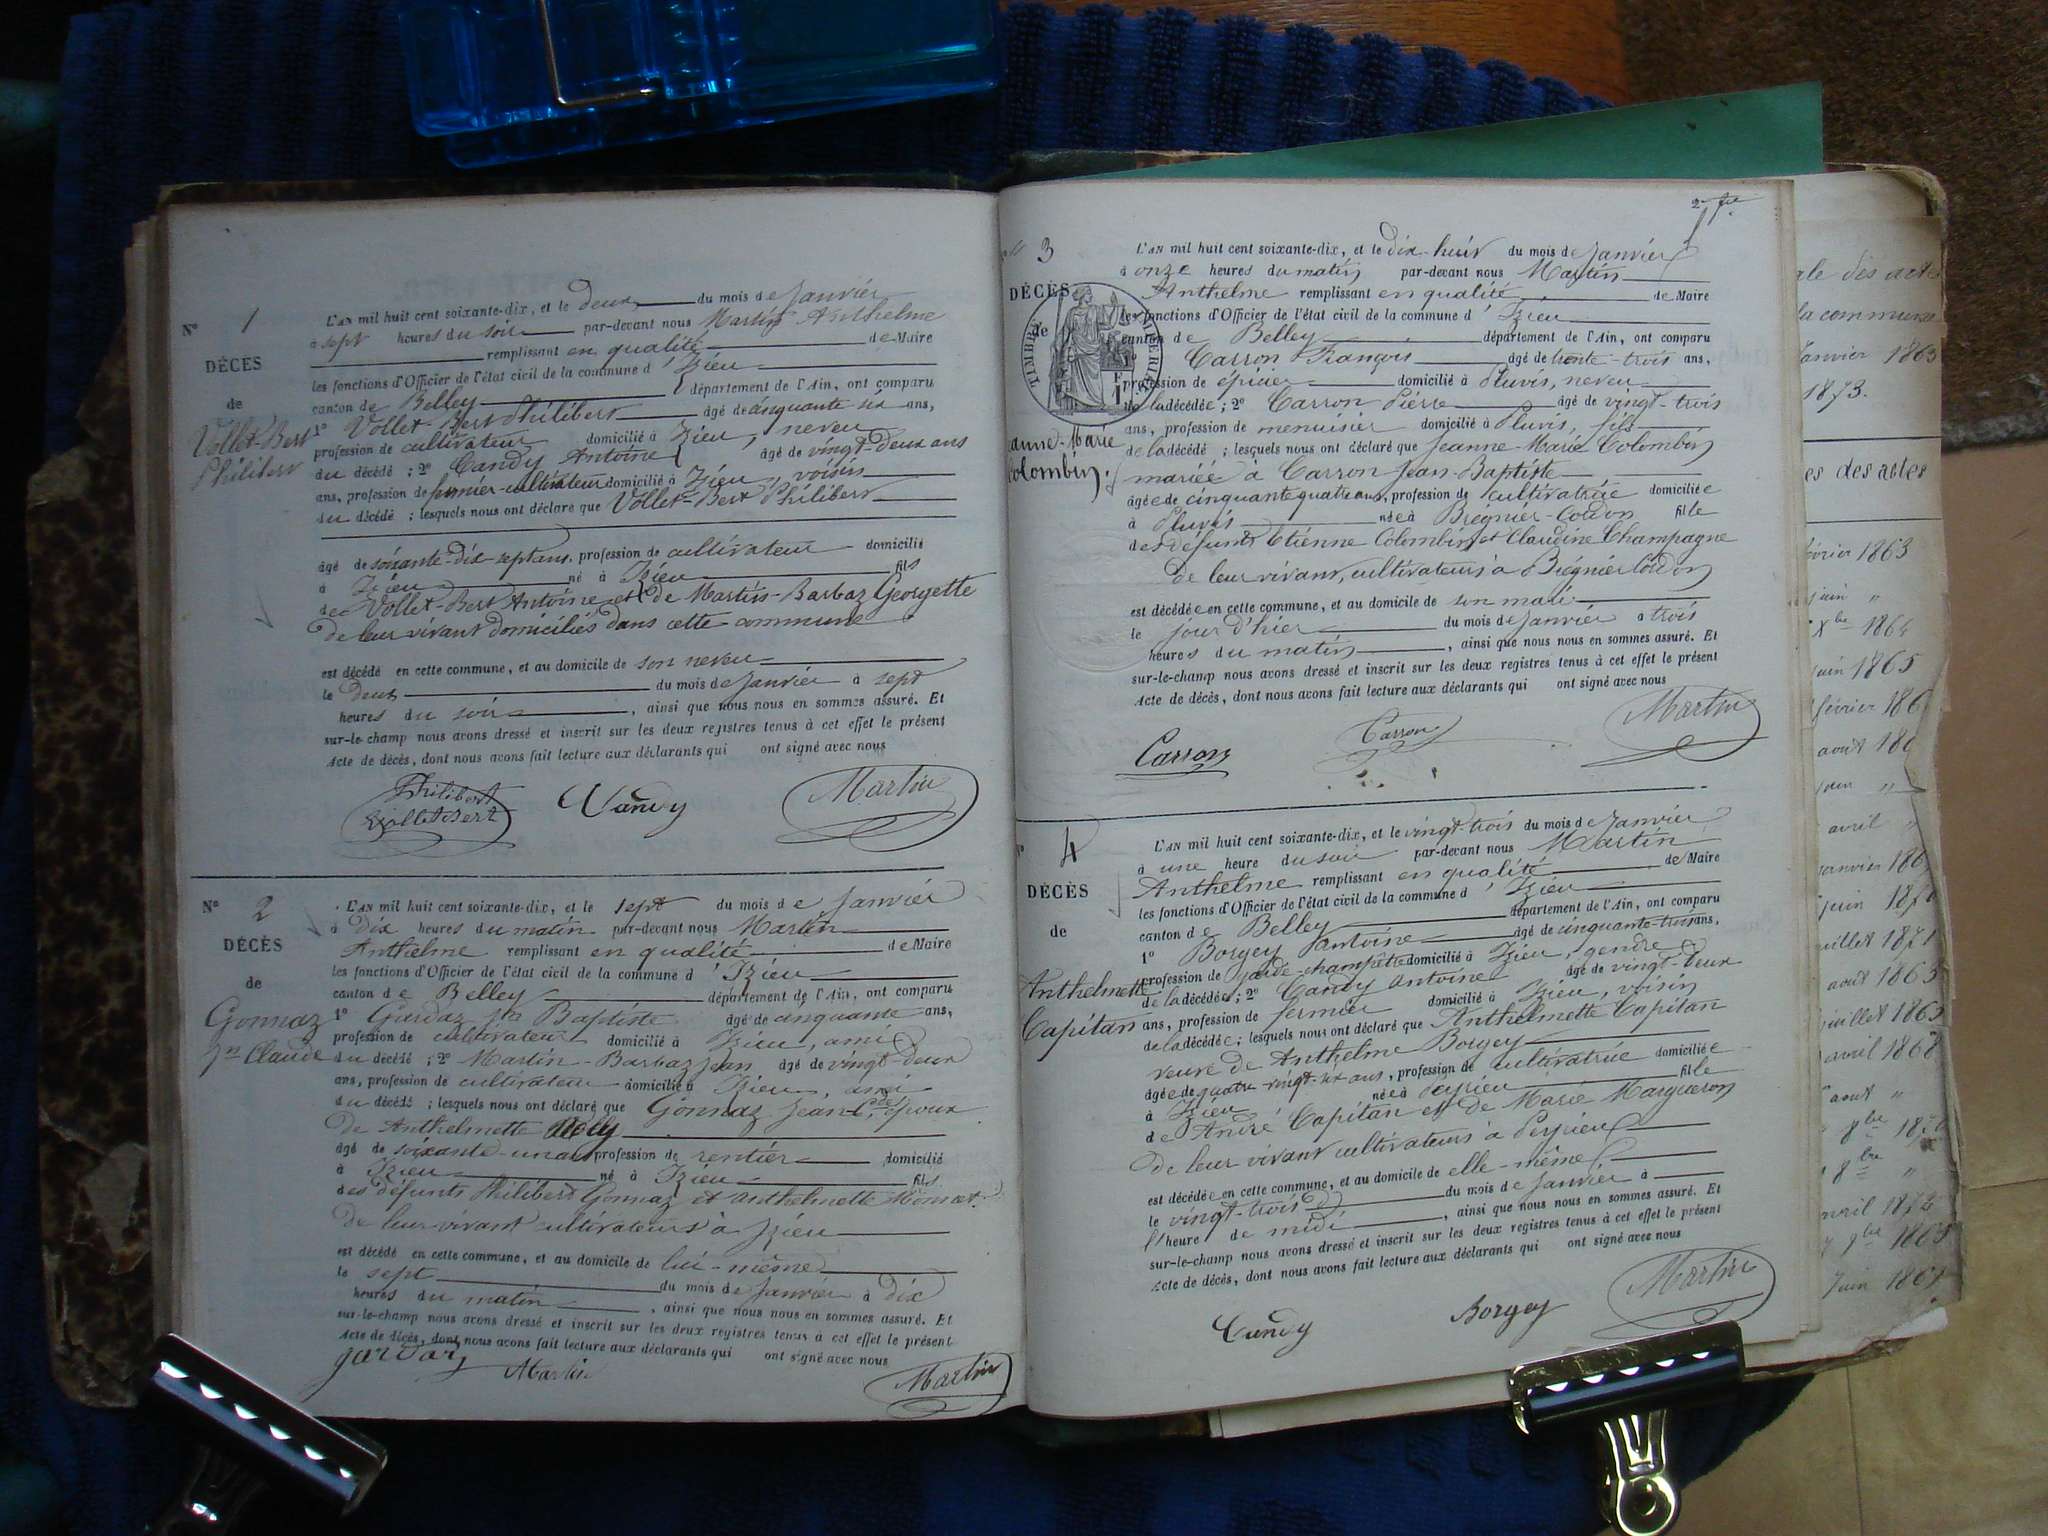 N° 1
DÉCÈS
de
Vollet-Bert
Philibert
L'AN mil huit cent soixante-dix, et le deux du mois de Janvier
à sept heures du soir par-devant nous Martin Anthelme
remplissant en qualité de Maire
les fonctions d'Officier de l'état civil de la commune d'Izieu
canton de Belley département de l'Ain, ont comparu
1° Vollet-Bert Philibert âgé de cinquante six ans,
profession de cultivateur domicilié à Izieu, neveu
du décédé ; 2° Candy Antoine âgé de vingt-deux ans
ans, profession de fermier-cultivateur domicilié à Izieu, voisin
du décédé ; lesquels nous ont déclaré que Vollet-Bert Philibert
âgé de soixante-dix-sept ans, profession de cultivateur domicilié
à Izieu né à Izieu fils
de Vollet-Bert Antoine et de Martin-Barbaz Georgette
de leur vivant domiciliés dans cette commune
est décédé en cette commune, et au domicile de son neveu
le deux du mois de Janvier à sept
heures du soir, ainsi que nous nous en sommes assuré. Et
sur-le-champ nous avons dressé et inscrit sur les deux registres tenus à cet effet le présent
Acte de décès, dont nous avons fait lecture aux déclarants qui ont signé avec nous
Philibert Candy Martin
Vollet Bert
N° 2
DÉCÈS
de
Gonnaz
Jn Claude
L'AN mil huit cent soixante-dix, et le sept du mois de Janvier
à dix heures du matin par-devant nous Martin
Anthelme remplissant en qualité de Maire
les fonctions d'Officier de l'état civil de la commune d'Izieu
canton de Belley département de l'Ain, ont comparu
1° Gardaz Jn Baptiste âgé de cinquante ans,
profession de cultivateur domicilié à Izieu, ami
du décédé ; 2° Martin-Barbaz Jean âgé de vingt-deux
ans, profession de cultivateur domicilié à Izieu, ami
du décédé ; lesquels nous ont déclaré que Gonnaz Jean-Cde époux
de Anthelmette
âgé de soixante-un ans profession de rentier domicilié
à Izieu né à Izieu fils
des défunts Philibert Gonnaz et Anthelmette
de leur vivant cultivateurs à Izieu
est décédé en cette commune, et au domicile de lui-même
le sept du mois de Janvier à dix
heures du matin, ainsi que nous nous en sommes assuré. Et
sur-le-champ nous avons dressé et inscrit sur les deux registres tenus à cet effet le présent
Acte de décès, dont nous avons fait lecture aux déclarants qui ont signé avec nous
gardaz Martin Martin
3
DÉCÈS
de
TIMBRE IMPÉRIAL
anne-Marie
Colombin.
L'AN mil huit cent soixante-dix, et le dix-huit du mois de Janvier
à onze heures du matin par-devant nous Martin
Anthelme remplissant en qualité de Maire
les fonctions d'Officier de l'état civil de la commune d'Izieu
canton de Belley département de l'Ain, ont comparu
Carron François âgé de trente-trois ans,
profession de épicier domicilié à Pluvis, neveu
de la décédée ; 2° Carron Pierre âgé de vingt-trois
ans, profession de menuisier domicilié à Pluvis, fils
de la décédé ; lesquels nous ont déclaré que Jeanne-Marie Colombin
mariée à Carron Jean-Baptiste
âgée de cinquante quatre ans, profession de cultivatrice domiciliée
à Pluvis née à Brégnier-Cordon fille
des défunts Etienne Colombin et Claudine Champagne
de leur vivant, cultivateurs à Brégnier Cordon
est décédée en cette commune, et au domicile de son mari
le jour d'hier du mois de Janvier à trois
heures du matin, ainsi que nous nous en sommes assuré. Et
sur-le-champ nous avons dressé et inscrit sur les deux registres tenus à cet effet le présent
Acte de décès, dont nous avons fait lecture aux déclarants qui ont signé avec nous
Carron Carron Martin
4
DÉCÈS
de
Anthelmette
Capitan
L'AN mil huit cent soixante-dix, et le vingt-trois du mois de Janvier
à une heure du soir par-devant nous Martin
Anthelme remplissant en qualité de Maire
les fonctions d'Officier de l'état civil de la commune d'Izieu
canton de Belley département de l'Ain, ont comparu
1° Borgey Antoine âgé de cinquante-trois ans,
profession de garde-champêtre domicilié à Izieu, gendre
de la décédée ; 2° Candy Antoine âgé de vingt-deux
ans, profession de fermier domicilié à Izieu, voisin
de la décédée ; lesquels nous ont déclaré que Anthelmette Capitan
veuve de Anthelme Borgey
âgée de quatre-vingt-six ans, profession de cultivatrice domiciliée
à Izieu née à Peyrieu fille
de André Capitan et de Marie Margueron
de leur vivant cultivateurs à Peyrieu
est décédée en cette commune, et au domicile de elle-même
le vingt-trois du mois de Janvier à
l'heure de midi, ainsi que nous nous en sommes assuré. Et
sur-le-champ nous avons dressé et inscrit sur les deux registres tenus à cet effet le présent
Acte de décès, dont nous avons fait lecture aux déclarants qui ont signé avec nous
Candy Borgey Martin
ale des actes
la commune
Janvier 1863
1873.
es des actes
février 1863
juin "
Xbre 1864
juin 1865
février 186
août 186
juin "
avril "
janvier 186
juin 1870
juillet 1871
août 1863
juillet 1865
avril 1868
août "
8bre 1870
8bre "
avril 1872
9bre 1865
Juin 1867